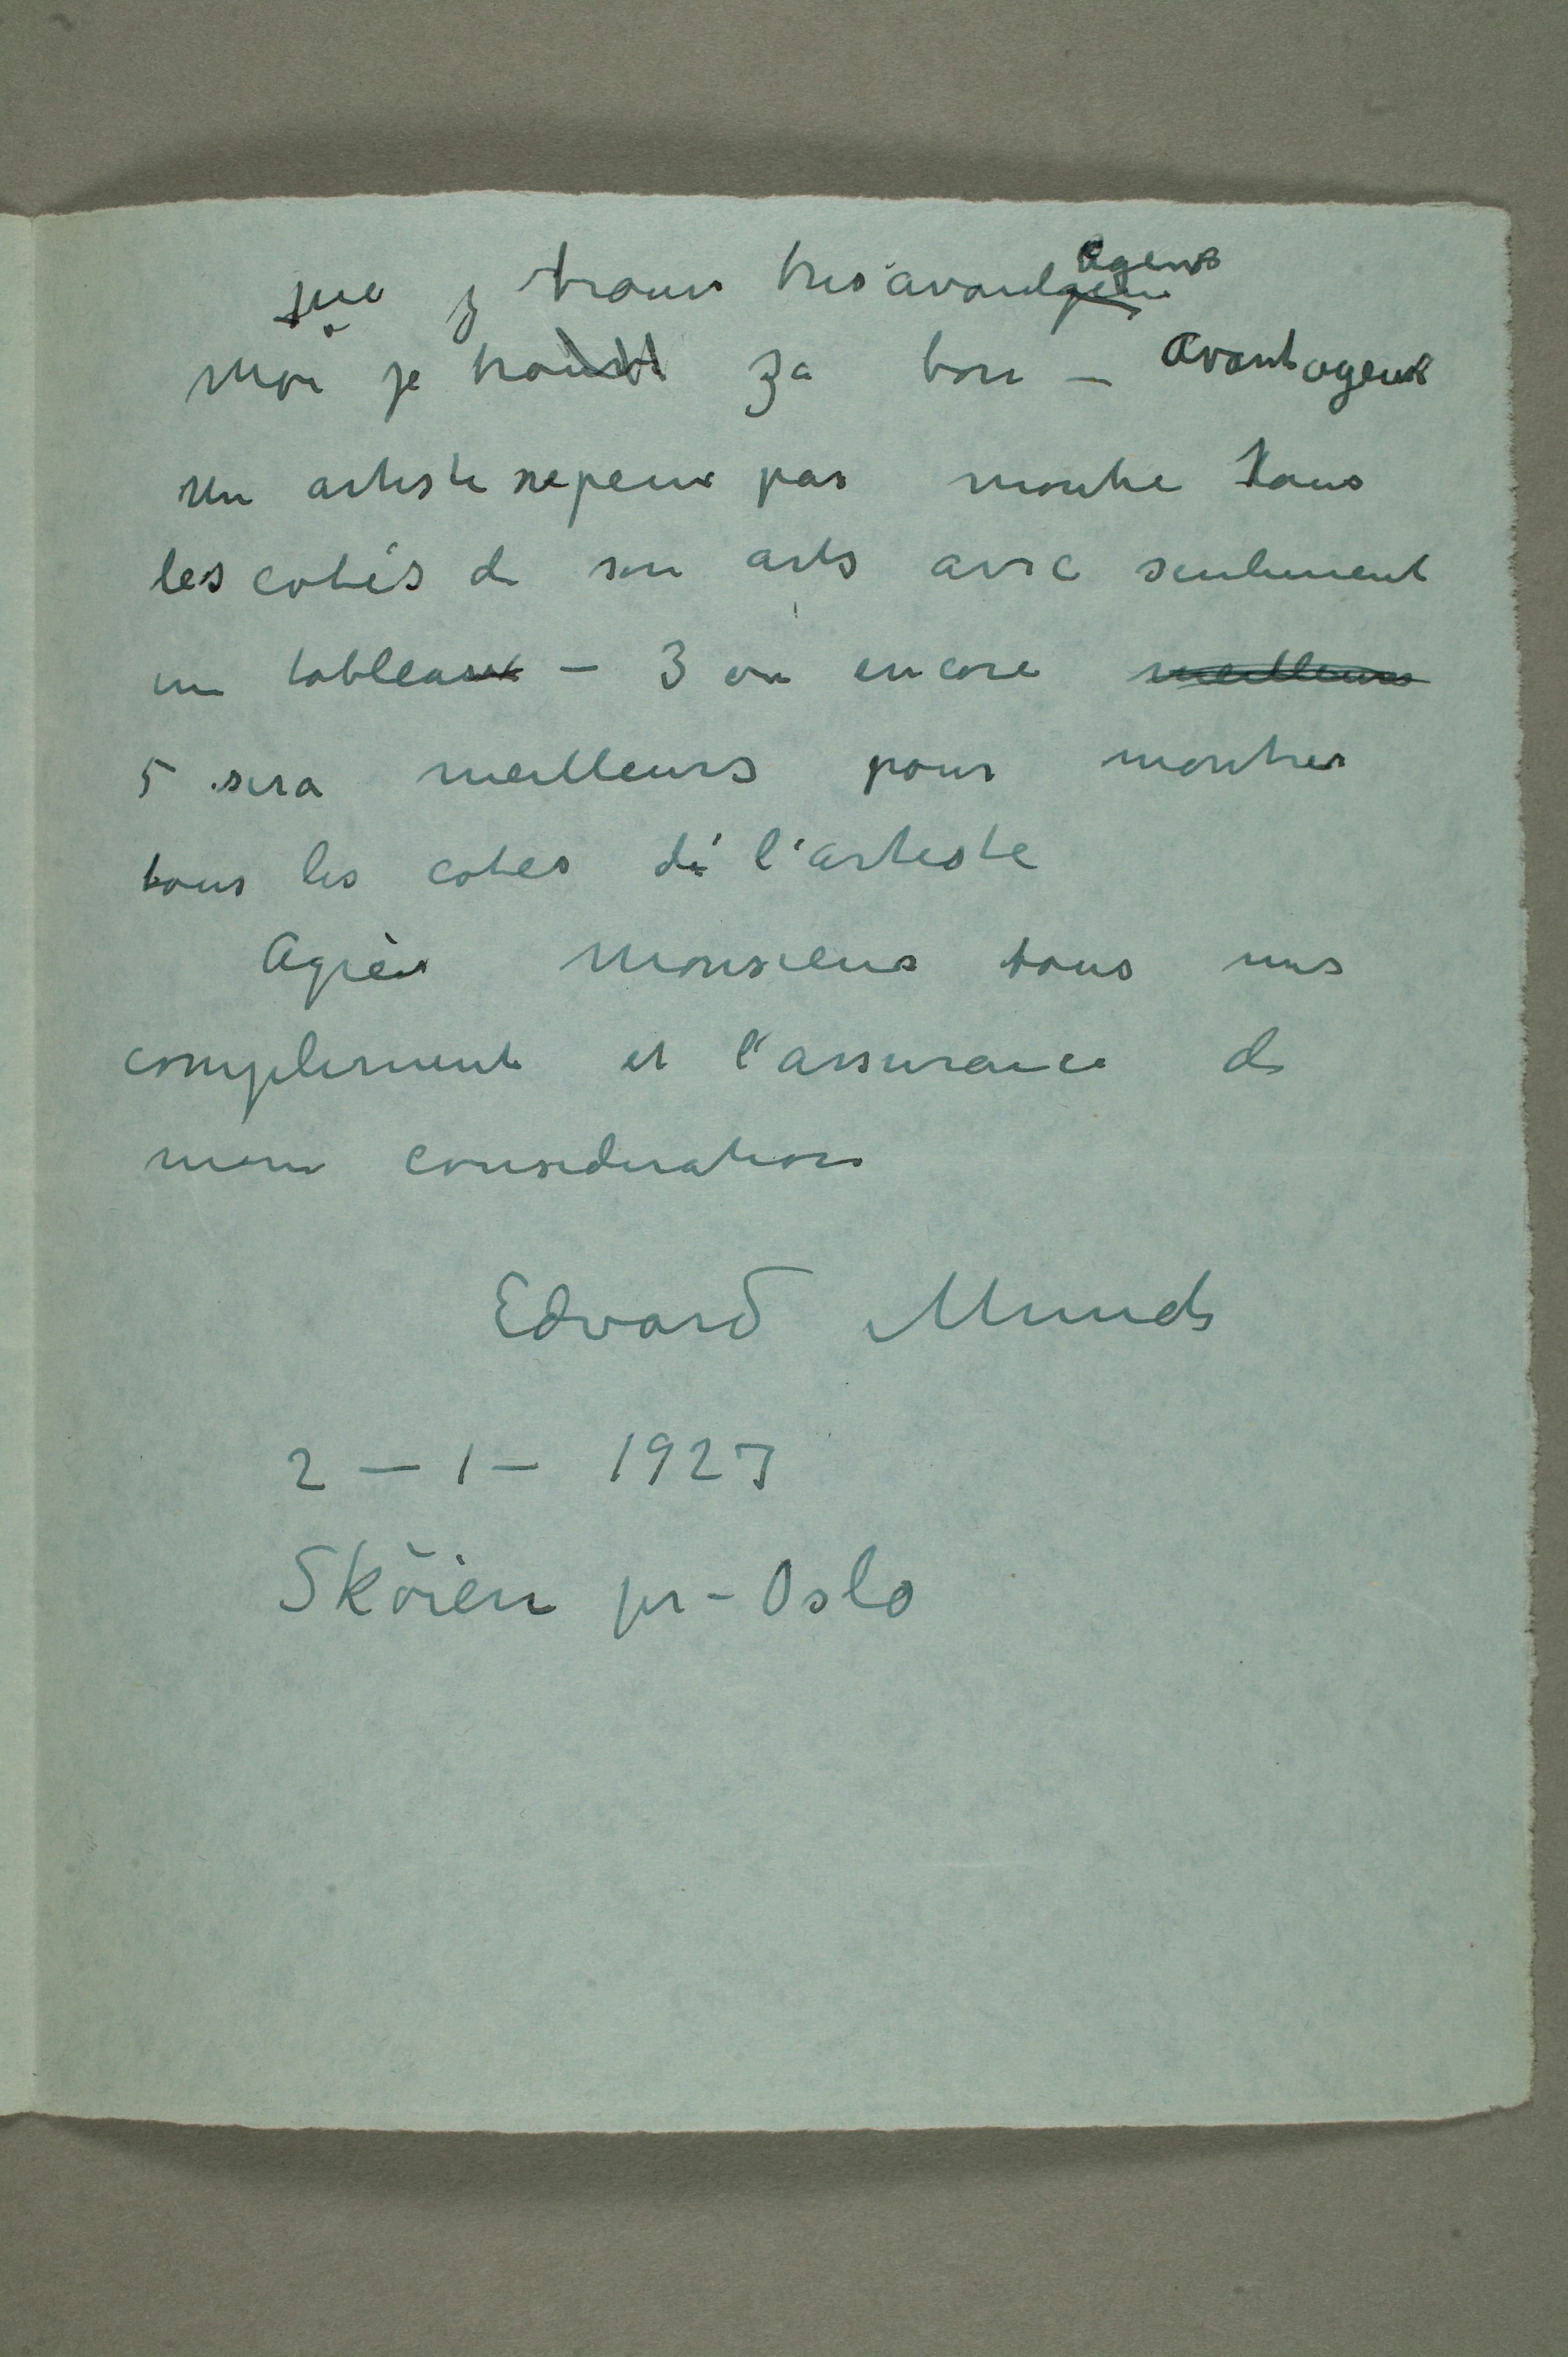 que je trouve tres avantageux
Moi je trouve za bon – avantageux
Un artiste nepeux pas montre tous
les cotés de son arts avec seulement
un tableau – 3 ou encore meilleurs
5 sera meilleurs pour montrer
tous les cotes de l'arteste
Agrèer Monsieur tous mes
complement et l'assurance de
mon consideration
Edvard Munch
2 – 1 – 1927
Sköien pr – Oslo